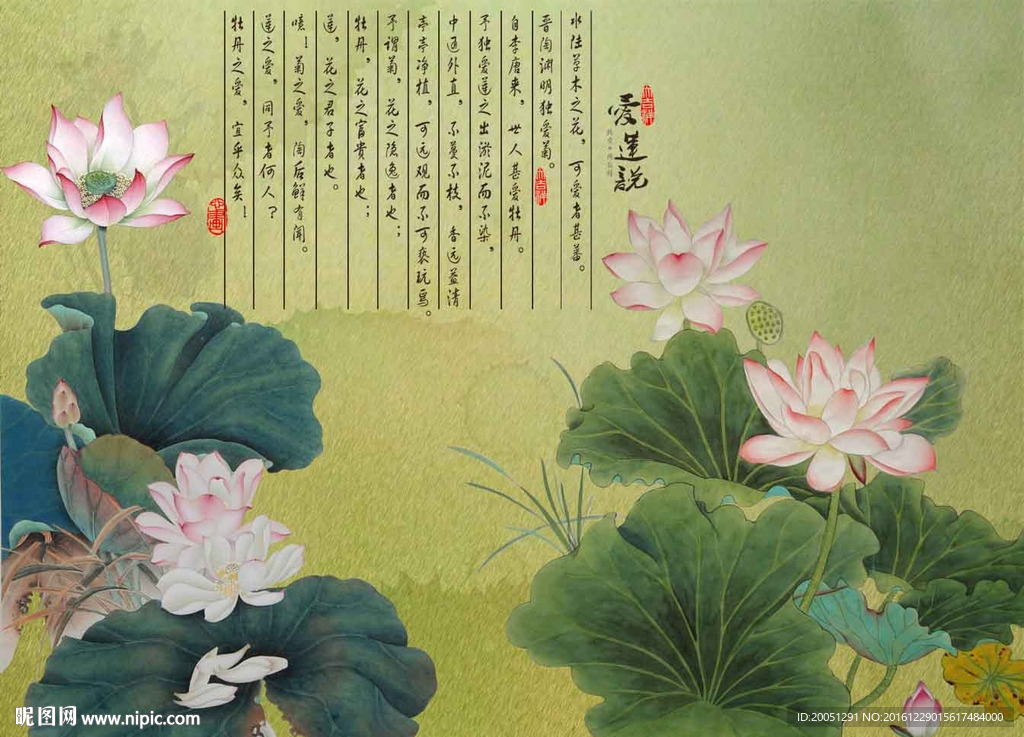 爱莲说
水陆草木之花，可爱者甚蕃。
晋陶渊明独爱菊。
自李唐来，世人甚爱牡丹。
予独爱莲之出淤泥而不染，
中通外直，不蔓不枝，香远益清
亭亭净植，可远观而不可亵玩焉。
予谓菊，花之隐逸者也；
牡丹，花之富贵者也；
莲，花之君子者也。
噫！菊之爱，陶后鲜有闻。
莲之爱，同予者何人？
牡丹之爱，宜乎众矣！
昵图网 www.nipic.com
ID:20051291 NO:20161229015617484000